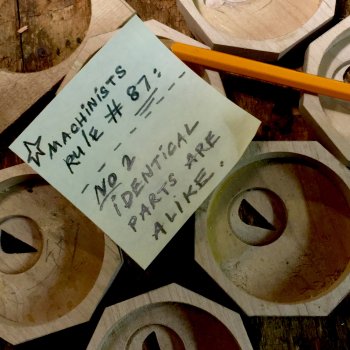 ☆ MACHINISTS
RULE # 87:
NO 2
IDENTICAL
PARTS ARE
ALIKE.